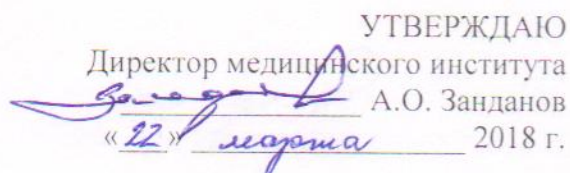 УТВЕРЖДАЮ
Директор медицинского института
А.О. Занданов
«22» марта 2018 г.